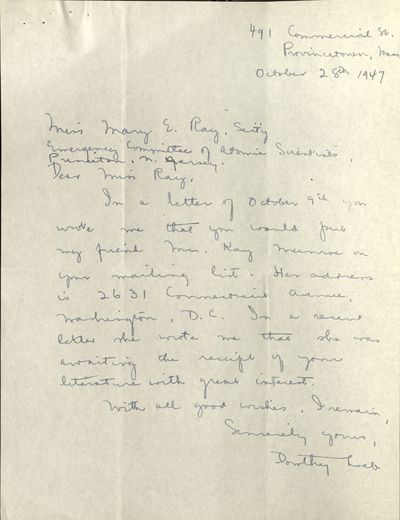 491 Commercial St.
Provincetown, Mass
October 28th 1947
Miss Mary E. Ray, Sec'ty
Emergency Committee of Atomic Scientists,
Princeton, N. Jersey.
Dear Miss Ray,
In a letter of October 9th you
wrote me that you would put
my friend Mrs. Kay Munroe on
your mailing list. Her address
is 2631 Connecticut Avenue,
Washington, D.C. In a recent
letter she wrote me that she was
awaiting the receipt of your
literature with great interest.
With all good wishes, I remain,
Sincerely yours,
Dorothy Loeb